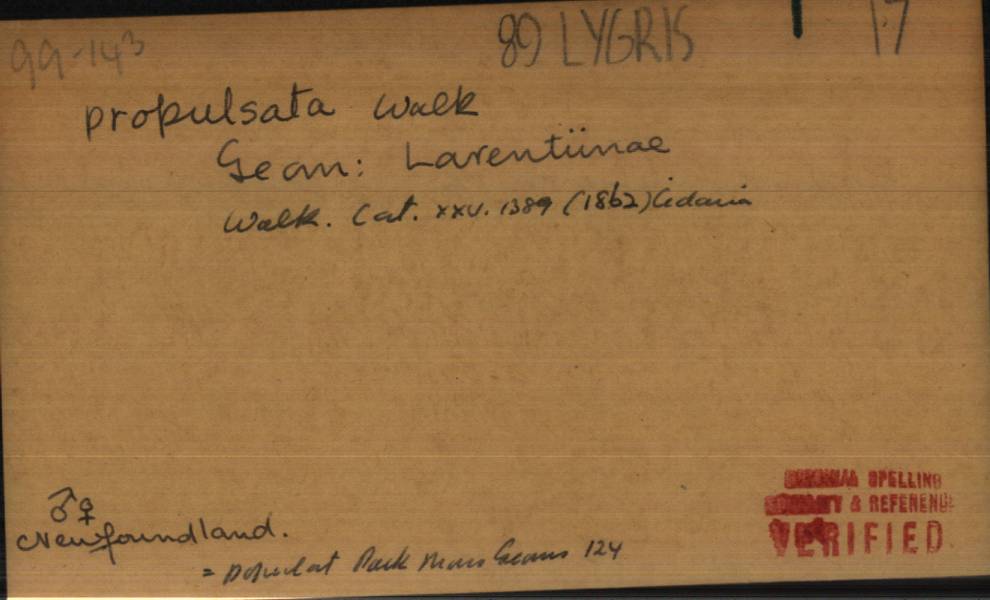 99-143 89 LYGRIS 17
propulsata Walk
Geom: Larentiinae
Walk. Cat. xxv. 1389 (1862) Cidaria
♂♀
Newfoundland.
= populat Pack Mon Geom 124
SPELLING
& REFERENCE
VERIFIED